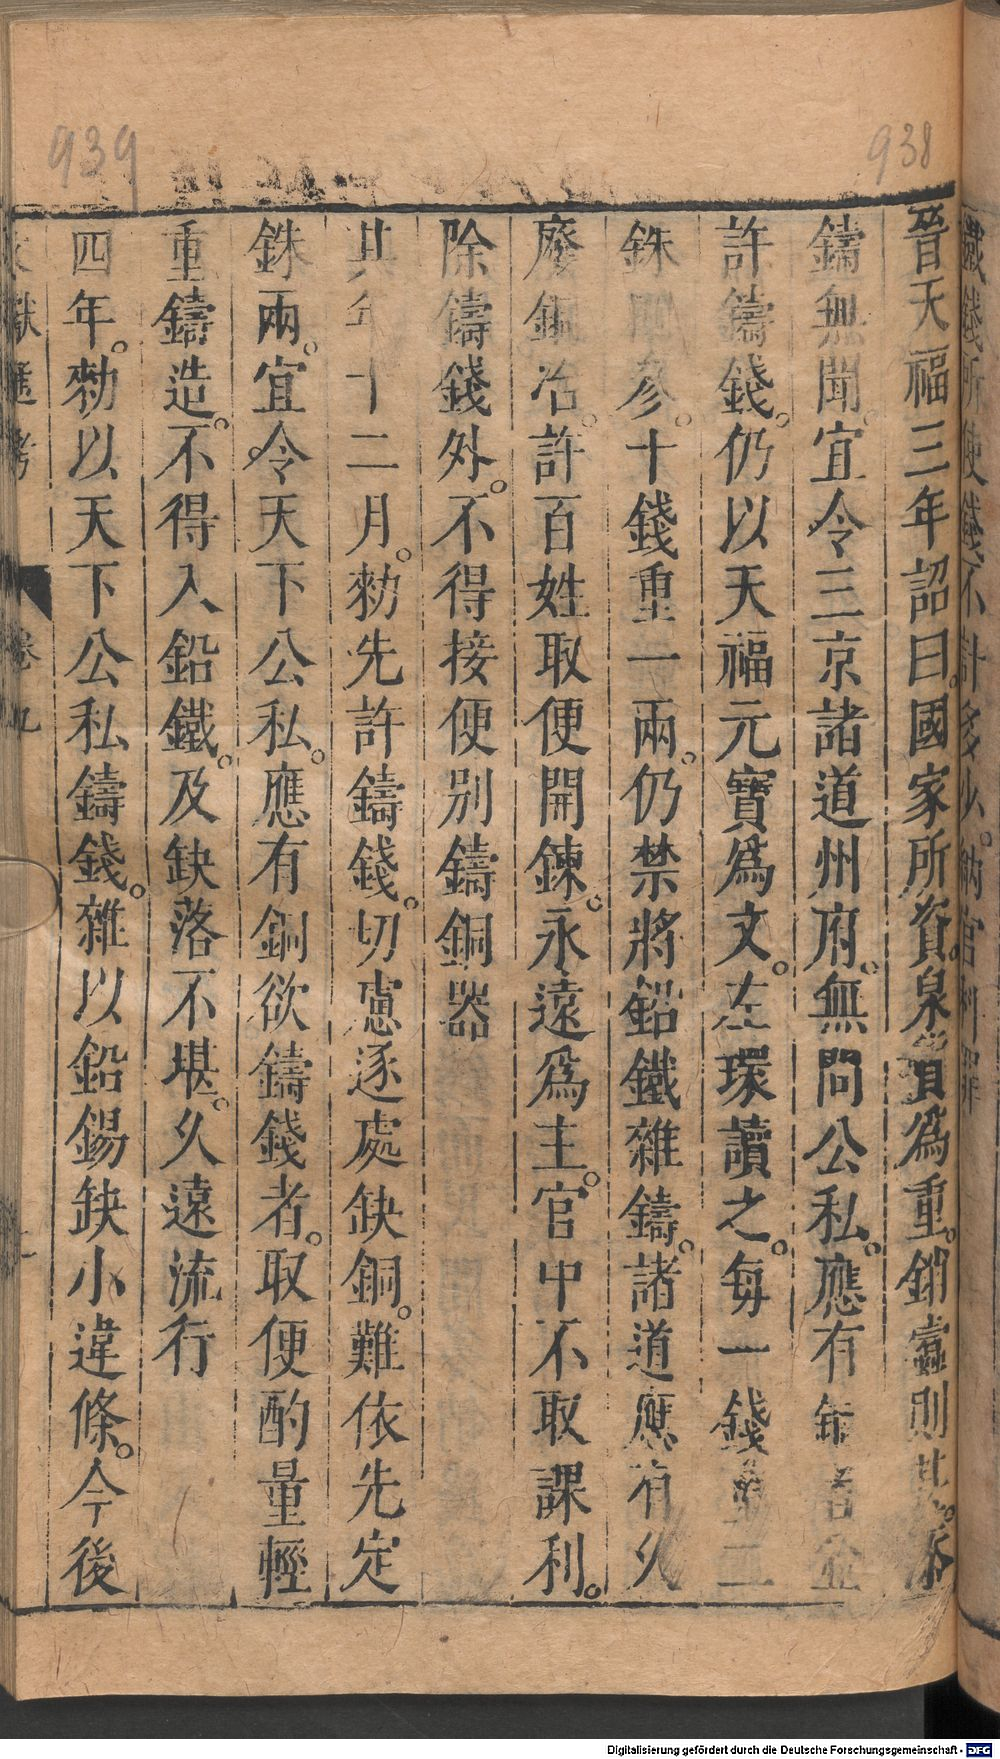 938
939
晉天福三年詔曰。國家所資。泉貨爲重。銷蠹則甚。添
鑄無聞。宜令三京諸道州府。無問公私。應有銅者並
許鑄錢。仍以天福元寶爲文。左環讀之。每一錢重二
銖四參。十錢重一兩。仍禁將鉛鐵雜鑄。諸道應有久
廢銅冶。許百姓取便開鍊。永遠爲主。官中不取課利。
除鑄錢外。不得接便別鑄銅器
其年十二月。勑先許鑄錢。切慮逐處缺銅。難依先定
銖兩。宜令天下公私。應有銅欲鑄錢者。取便酌量輕
重鑄造。不得入鉛鐵。及缺落不堪。久遠流行
四年。勑以天下公私鑄錢。雜以鉛錫缺小違條。今後
獻通考 卷九
鐵錢所使錢不計多少。納官科罪
Digitalisierung gefördert durch die Deutsche Forschungsgemeinschaft - DFG